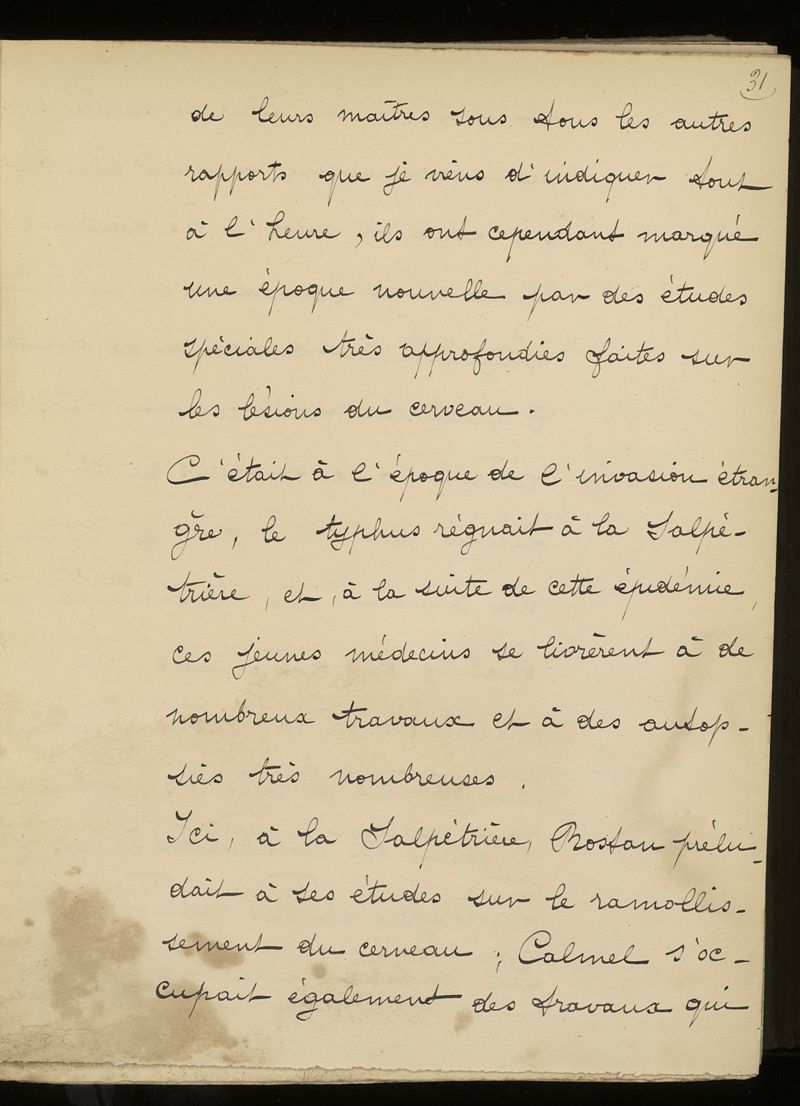 31
de leurs maîtres sous tous les autres
rapports que je viens d'indiquer tout
à l'heure, ils ont cependant marqué
une époque nouvelle par des études
spéciales très approfondies faites sur
les lésions du cerveau.
C'était à l'époque de l'invasion étran-
gère, le typhus régnait à la Salpê-
trière, et, à la suite de cette épidémie,
ces jeunes médecins se livrèrent à de
nombreux travaux et à des autop-
siès très nombreuses.
Ici, à la Salpêtrière, Rostan prélu-
dait à ses études sur le ramollis-
sement du cerveau ; Calmel s'oc-
cupait également des travaux qui